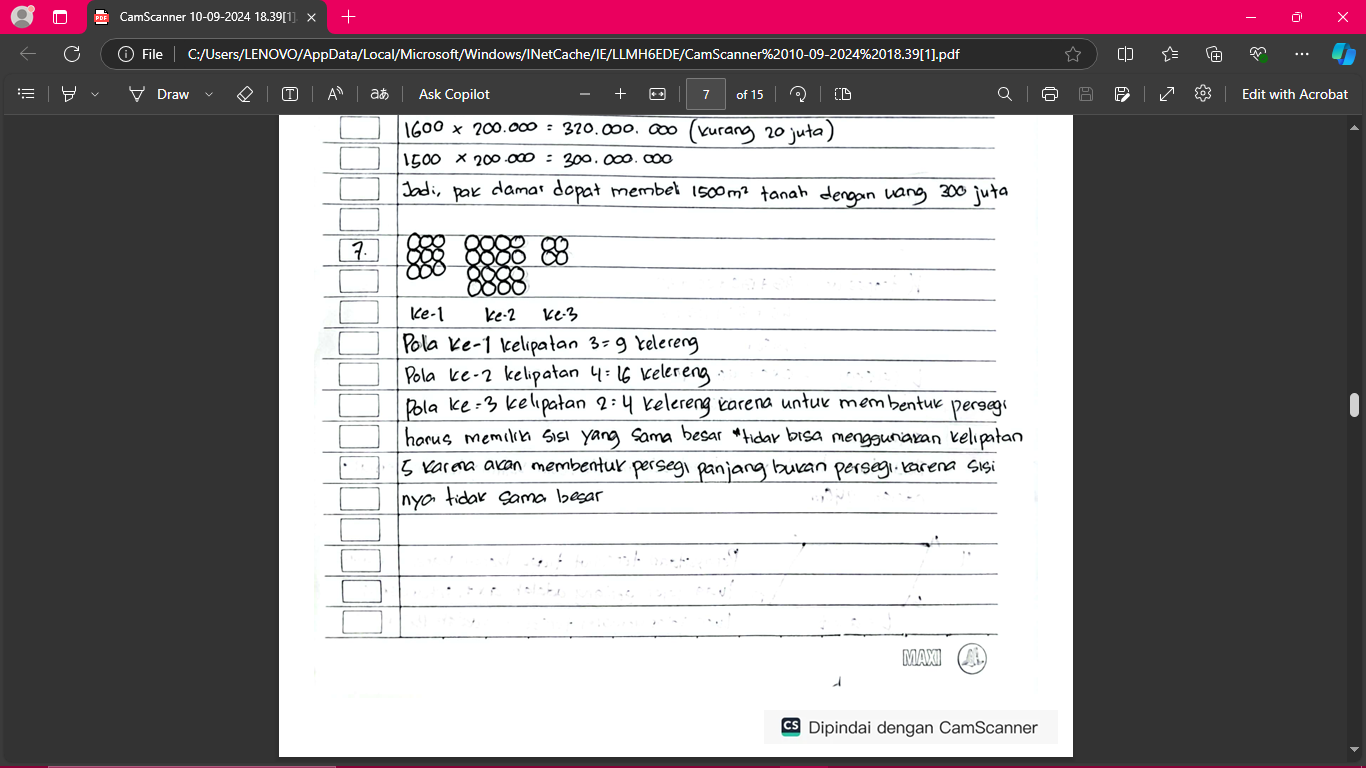 CamScanner 10-09-2024 18.39[1].
File C:/Users/LENOVO/AppData/Local/Microsoft/Windows/INetCache/IE/LLMH6EDE/CamScanner%2010-09-2024%2018.39[1].pdf
Draw Ask Copilot 7 of 15 Edit with Acrobat
1600 x 200.000 = 320.000.000 (kurang 20 juta)
1500 x 200.000 = 300.000.000
Jadi, pak damar dapat membeli 1500 m² tanah dengan uang 300 juta
7.
ke-1 ke-2 ke-3
Pola ke-1 kelipatan 3 = 9 kelereng
Pola ke-2 kelipatan 4 = 16 kelereng
Pola ke=3 kelipatan 2 = 4 kelereng karena untuk membentuk persegi
harus memiliki sisi yang sama besar *tidak bisa menggunakan kelipatan
5 karena akan membentuk persegi panjang bukan persegi. karena sisi
nya tidak sama besar
MAXI
CS Dipindai dengan CamScanner